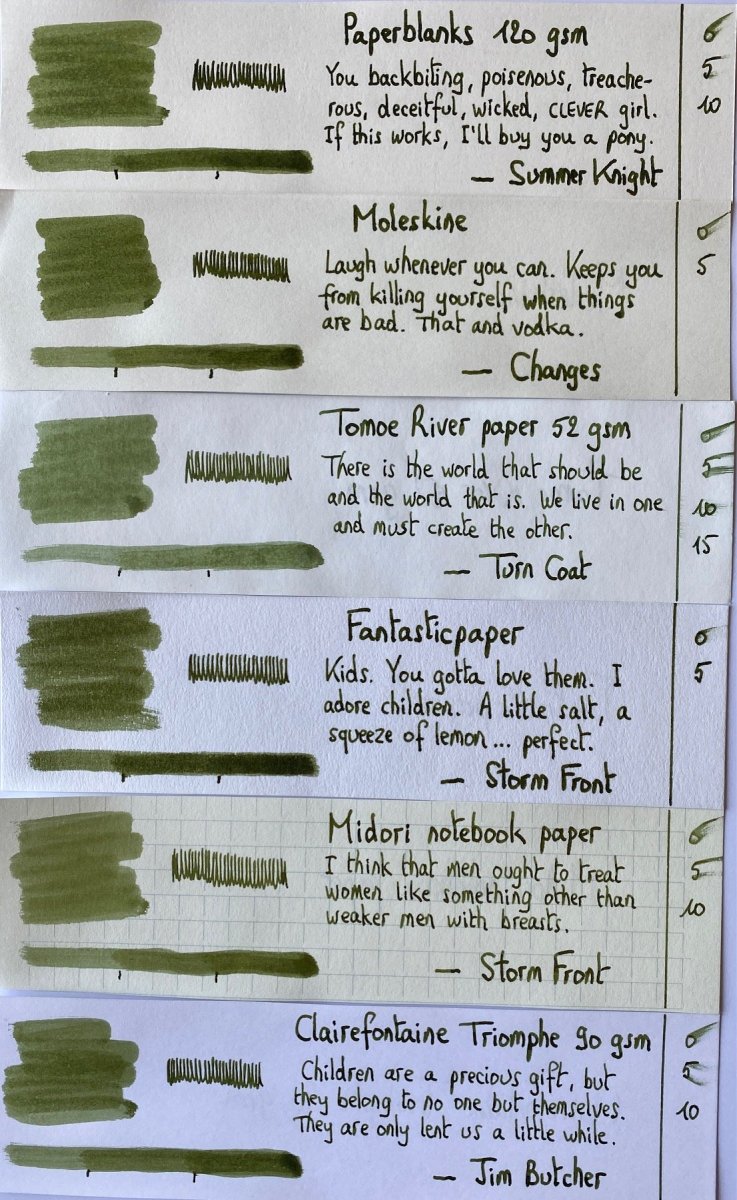 Paperblanks 120 gsm
You backbiting, poisenous, treache-
rous, deceitful, wicked, CLEVER girl.
If this works, I'll buy you a pony.
— Summer Knight
0
5
10
Moleskine
Laugh whenever you can. Keeps you
from killing yourself when things
are bad. That and vodka.
— Changes
0
5
Tomoe River paper 52 gsm
There is the world that should be
and the world that is. We live in one
and must create the other.
— Turn Coat
0
5
10
15
Fantasticpaper
Kids. You gotta love them. I
adore children. A little salt, a
squeeze of lemon... perfect.
— Storm Front
0
5
Midori notebook paper
I think that men ought to treat
women like something other than
weaker men with breasts.
— Storm Front
0
5
10
Clairefontaine Triomphe 90 gsm
Children are a precious gift, but
they belong to no one but themselves.
They are only lent us a little while.
— Jim Butcher
0
5
10